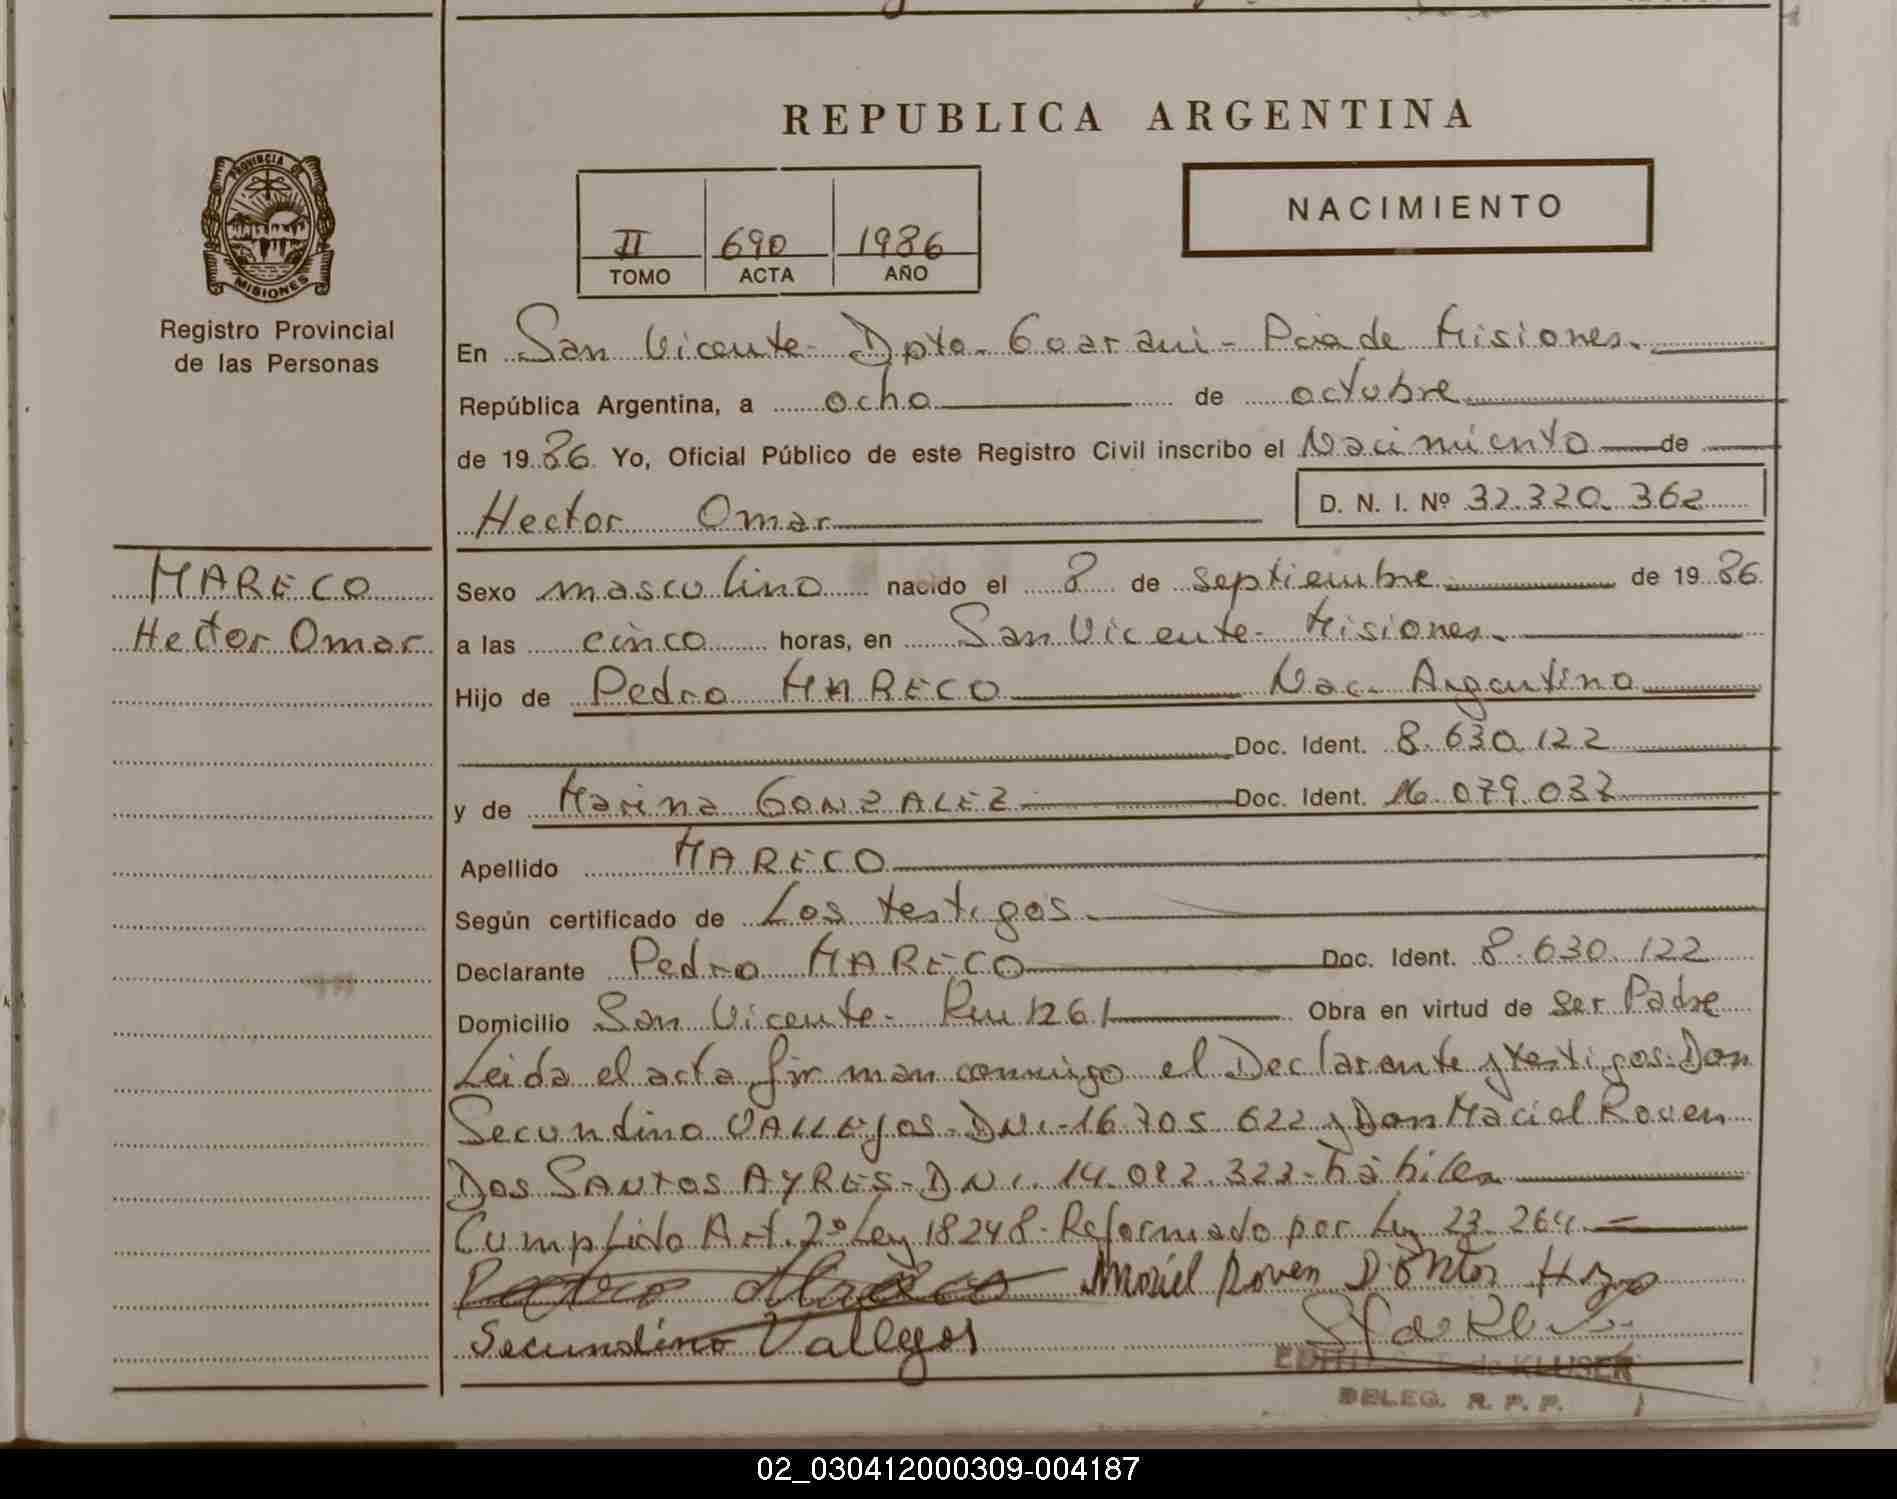 REPUBLICA ARGENTINA
PROVINCIA DE
MISIONES
Registro Provincial
de las Personas
II 690 1986
TOMO ACTA AÑO
NACIMIENTO
En San Vicente - Dpto. Guarani - Pcia de Misiones.
República Argentina, a ocho de octubre
de 1986 Yo, Oficial Público de este Registro Civil inscribo el Nacimiento de
Hector Omar D. N. I. Nº 32.320.362
MARECO
Hector Omar
Sexo masculino nacido el 8 de septiembre de 1986
a las cinco horas, en San Vicente - Misiones.
Hijo de Pedro MARECO Nac. Argentino
Doc. Ident. 8.630.122
y de Marina GONZALEZ Doc. Ident. 16.079.037
Apellido MARECO
Según certificado de Los testigos.
Declarante Pedro MARECO Doc. Ident. 8.630.122
Domicilio San Vicente - Km 1261 Obra en virtud de ser Padre
Leida el acta firman conmigo el Declarante y testigos: Don
Secundino VALLEJOS - DNI - 16.705.622 y Don Maciel Roven
Dos SANTOS AYRES - DNI. 14.082.323 - hábiles
Cumplido Art. 2º Ley 18248 - Reformado por Ley 23.264 =
Pedro Mareco
Secundino Vallejos
de KLUSER
DELEG. R. P. P.
02_030412000309-004187